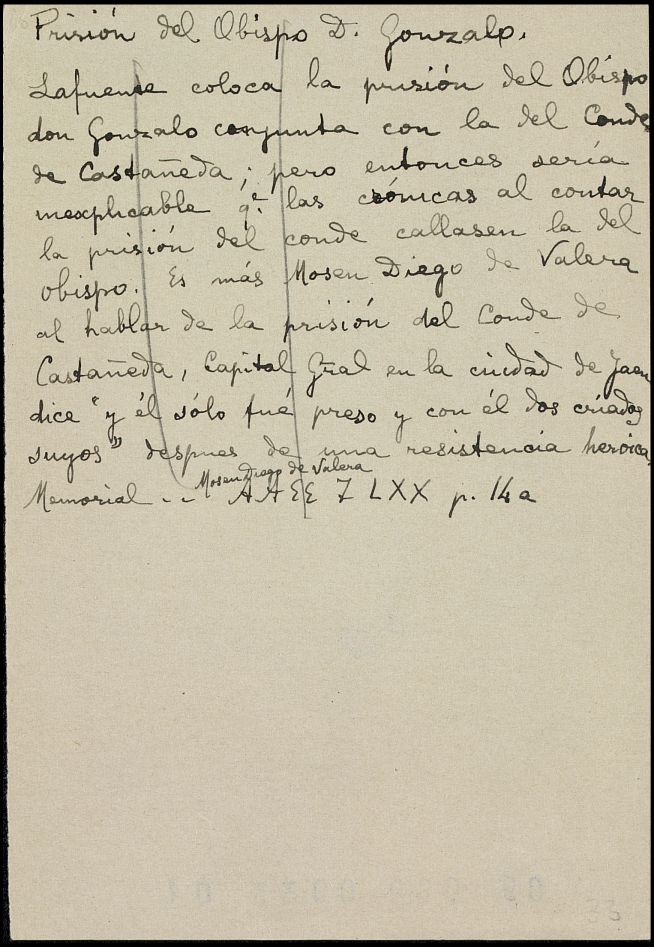 Prisión del Obispo D. Gonzalo.
Lafuente coloca la prisión del Obispo
don Gonzalo conjunta con la del Conde
de Castañeda; pero entonces sería
inexplicable q.e las crónicas al contar
la prisión del conde callasen la del
obispo. Es más Mosen Diego de Valera
al hablar de la prisión del Conde de
Castañeda, Capital Gral en la ciudad de Jaen
dice "y él sólo fué preso y con él dos criados
suyos" despues de una resistencia heroica.
Mosen Diego de Valera
Memorial . . . AAEE T LXX p. 14a
33